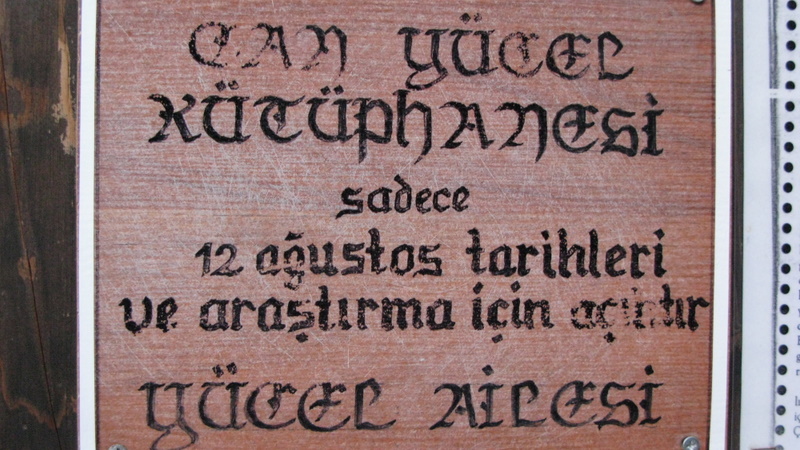 CAN YÜCEL
KÜTÜPHANESİ
sadece
12 ağustos tarihleri
ve araştırma için açıktır
YÜCEL AİLESİ